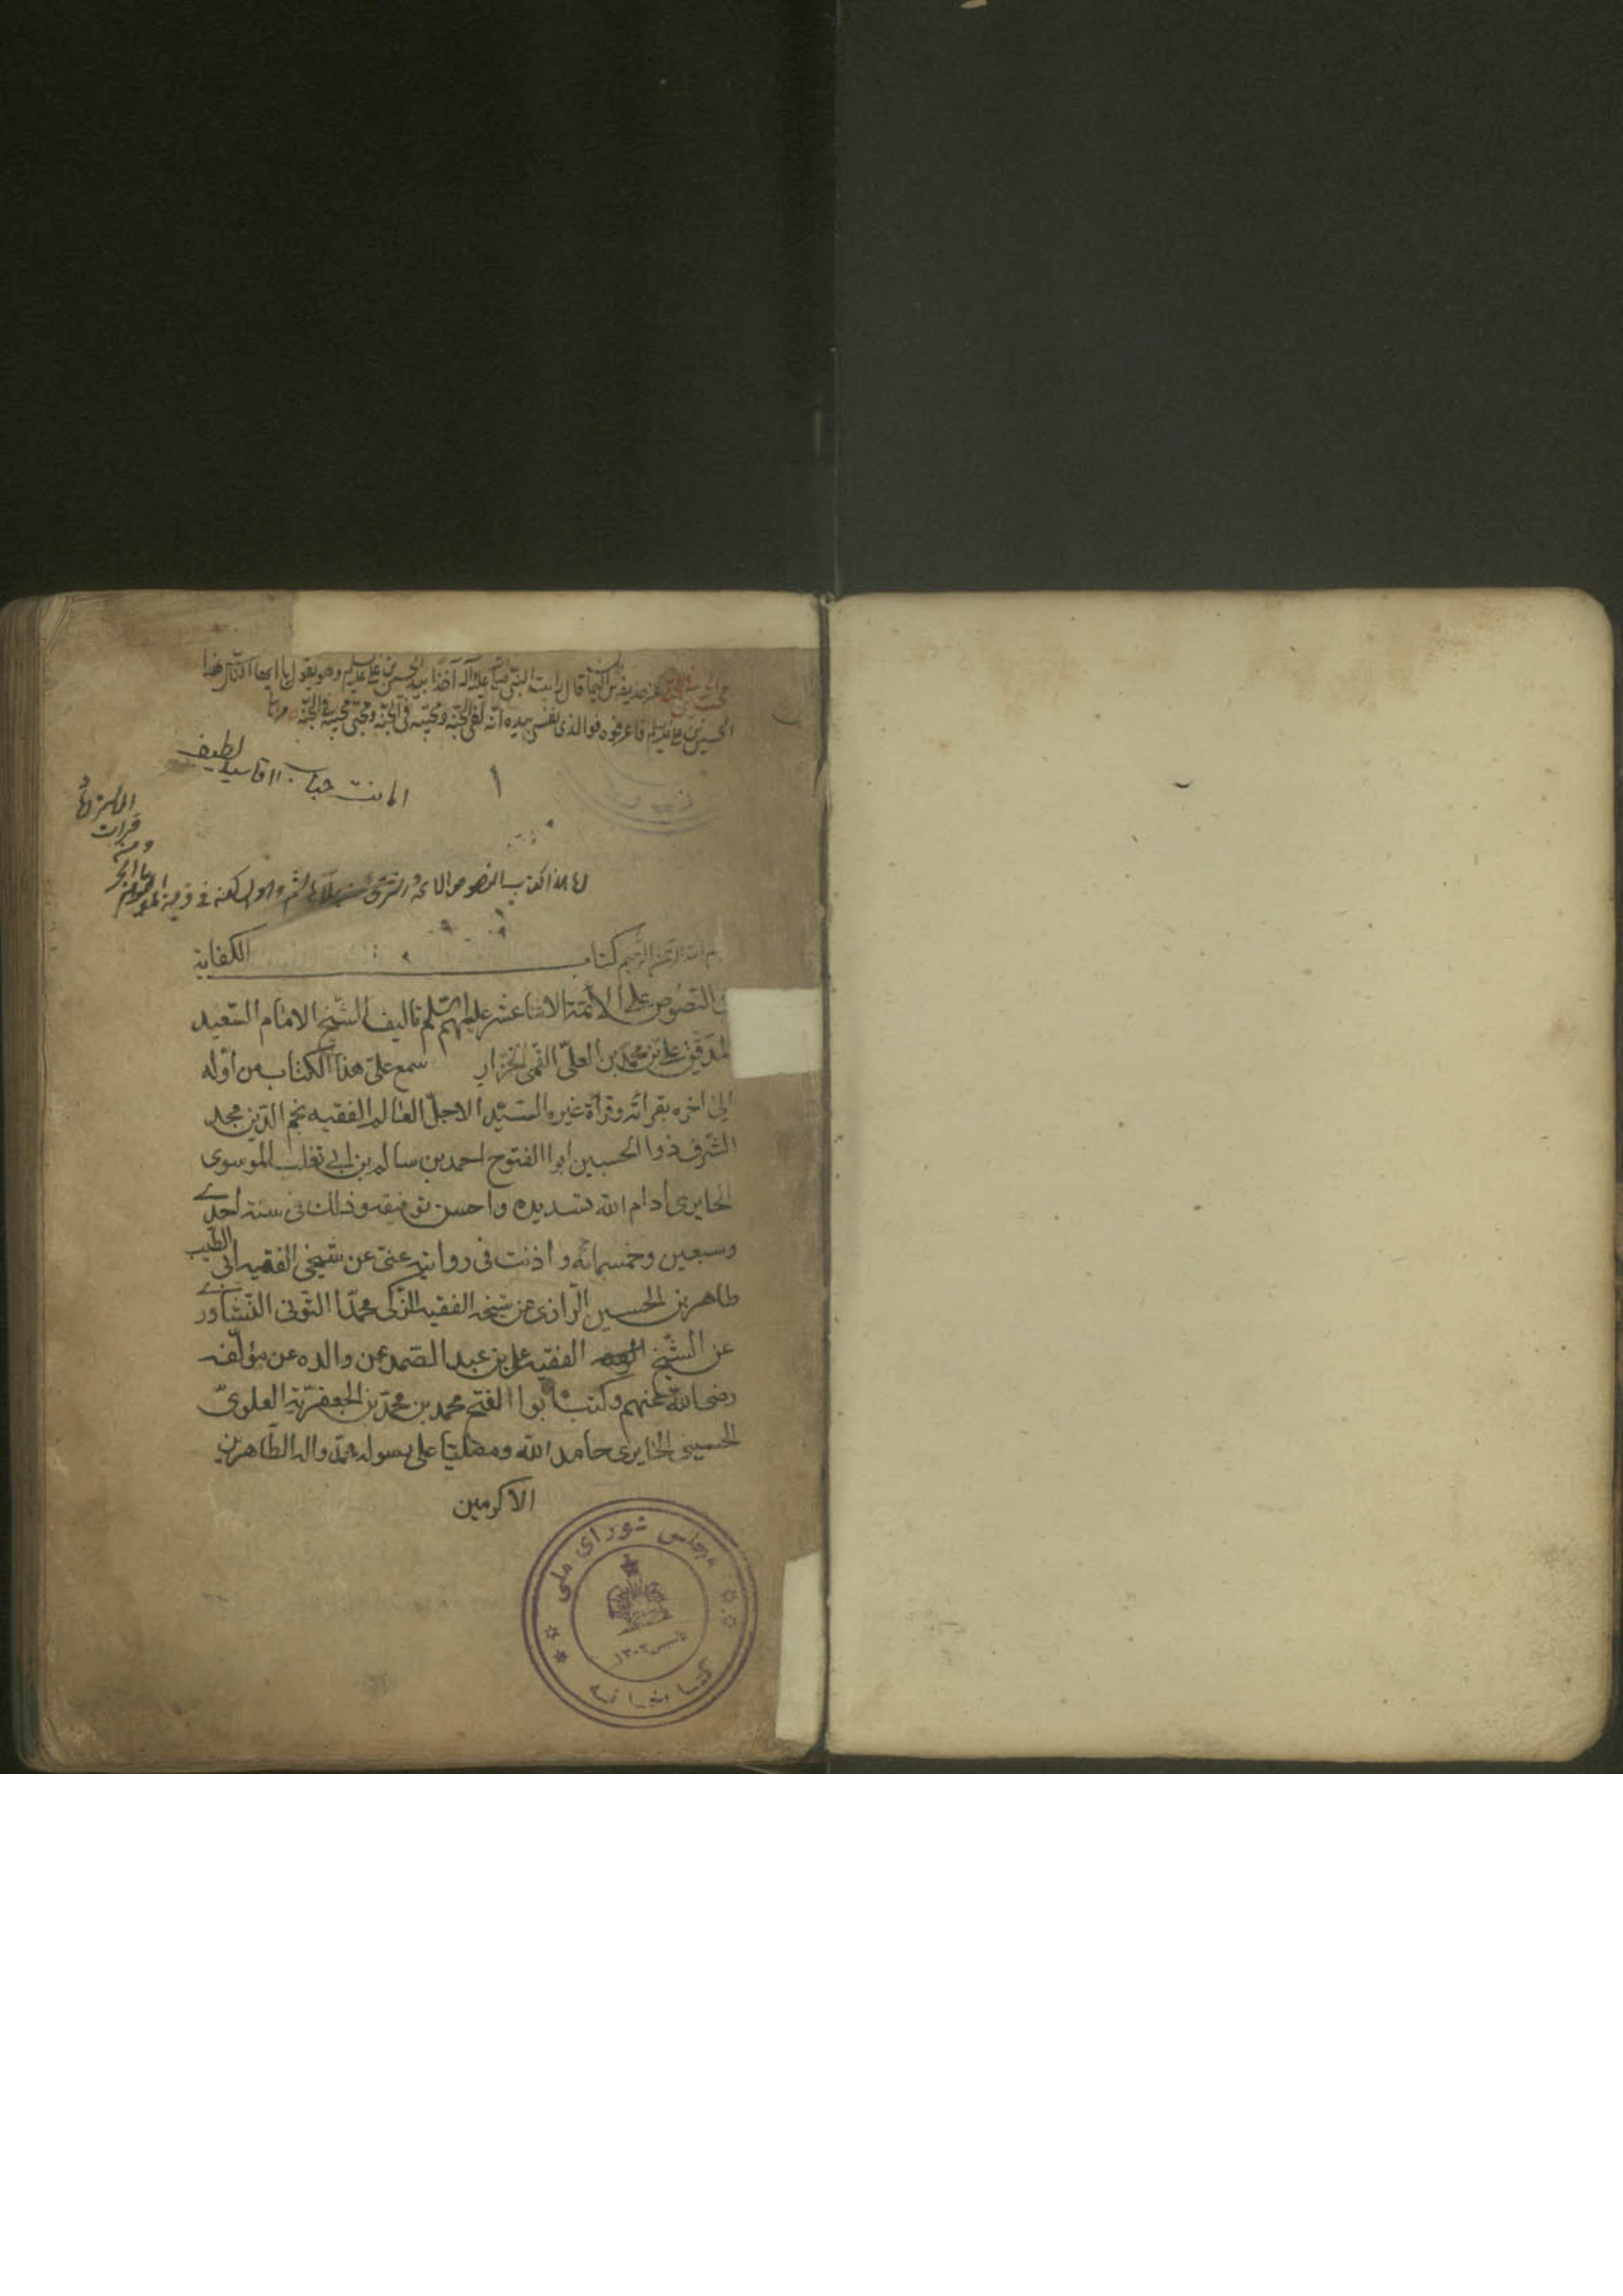 عن حذيفة بن اليمان قال رايت النبي صلى الله عليه وآله آخذا بيد الحسين بن علي عليهما السلم وهو يقول يا ايها الناس هذا
الحسين بن علي عليهما السلم فاعرفوه فوالذي نفسي بيده انه لفي الجنة ومحبيه في الجنة ومحبي محبيه في الجنة
امانت جناب اقا سيد لطيف
١
فرات
هذا كتاب النصوص
بسم الله الرحمن الرحيم كتاب الكفاية
في النصوص على الأئمة الاثنا عشر عليهم السلم تاليف الشيخ الامام السعيد
المدقق علي بن محمد بن العلي القمي الخزاز سمع علي هذا الكتاب من أوله
الى اخره بقرائته وقرأة غيره السيد الاجل العالم الفقيه نجم الدين مجد
الشرف ذو الحسبين ابوا الفتوح احمد بن سالم بن ابي تغلب الموسوى
الحايرى أدام الله تسديده واحسن توفيقه وذلك في سنة احدے
وسبعين وخمسمائه واذنت في روايته عني عن شيخي الفقيه ابي الطيب
طاهر بن الحسين الرازى عن شيخه الفقيه الزكى محمد التونى النيشاورے
عن الشيخ الفقيه علي بن عبد الصمد عن والده عن مؤلفه
رضي الله عنهم وكتب ابوا الفتح محمد بن محمد بن الجعفرية العلوي
الحسينى الحايرى حامد الله ومصليا على رسوله محمد واله الطاهرين
الاكرمين
مجلس شوراى ملى
تاسيس ١٣٠٢
كتابخانه